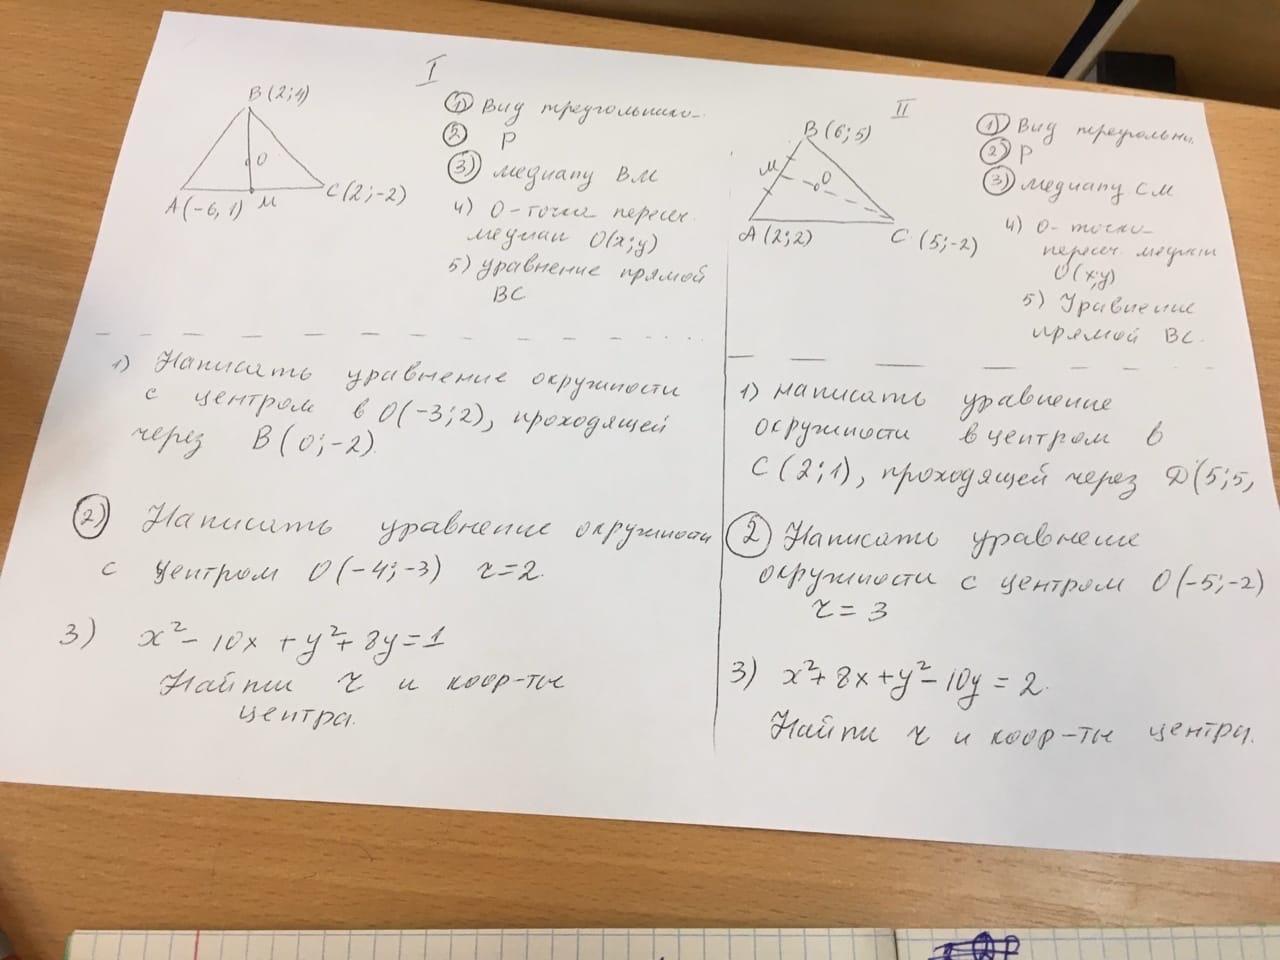 I
B (2;4)
O
A (-6, 1)
M
C (2; -2)
1) Вид треугольника
2) P
3) медиану ВМ
4) О - точка пересеч.
медиан О(х;у)
5) уравнение прямой
ВС
1) Написать уравнение окружности
с центром в О(-3;2), проходящей
через В(0;-2).
2) Написать уравнение окружности
с центром О(-4;-3) r=2.
3) x²- 10x + y²+ 8y=1
Найти r и коор-ты
центра.
II
B (6; 5)
M
O
A (2;2)
C (5;-2)
1) Вид треугольни.
2) P
3) медиану СМ
4) О- точка
пересеч. медиан
О(х;у)
5) Уравнение
прямой ВС.
1) написать уравнение
окружности в центром в
С(2;1), проходящей через D(5;5,
2 Написать уравнение
окружности с центром О(-5;-2)
r= 3
3) x²+ 8x+y²-10y = 2.
Найти r и коор-ты центра.
P